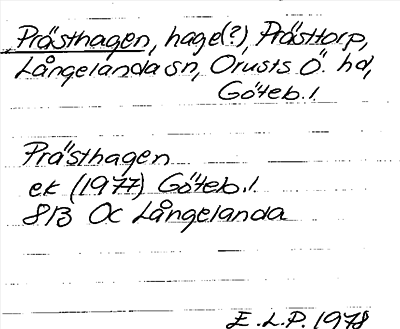 Prästhagen, hage(?), Prästtorp,
Långelanda sn, Orusts Ö. hd,
Göteb. l.
Prästhagen
ek (1977) Göteb. l.
8B 0c Långelanda
E.L.P. 1978